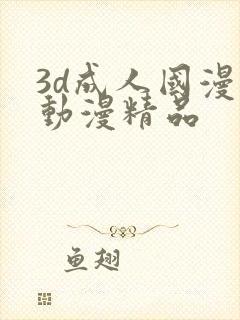 3d成人國漫
動漫精品
鱼翅